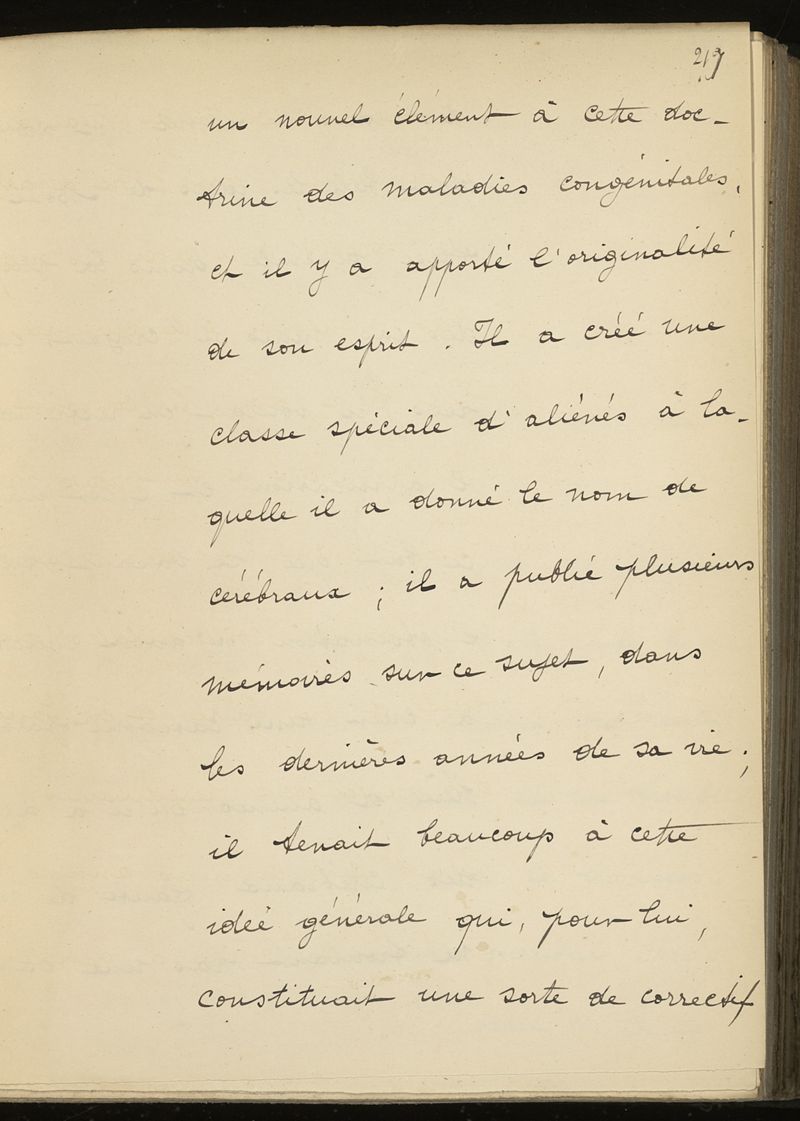 217
un nouvel élément à cette doc-
trine des maladies congénitales,
et il y a apporté l'originalité
de son esprit. Il a créé une
classe spéciale d'aliénés à la-
quelle il a donné le nom de
cérébraux ; il a publié plusieurs
mémoires sur ce sujet, dans
les dernières années de sa vie ;
il tenait beaucoup à cette
idée générale qui, pour lui,
constituait une sorte de correctif